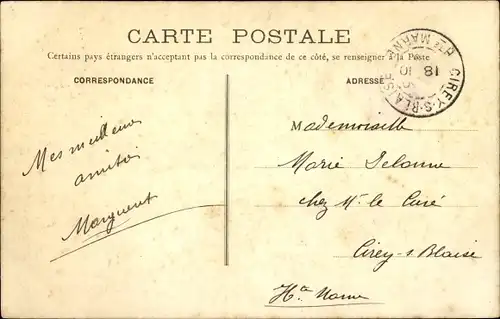 CARTE POSTALE
Certains pays étrangers n'acceptant pas la correspondance de ce côté, se renseigner à la Poste
CORRESPONDANCE
ADRESSE
CIREY-S-BLAISE
Hte MARNE
18 10
Mes meilleures
amitiés
Marguerit
Mademoiselle
Marie Delanne
chez Mr. le Curé
Cirey-s Blaise
Hte Marne